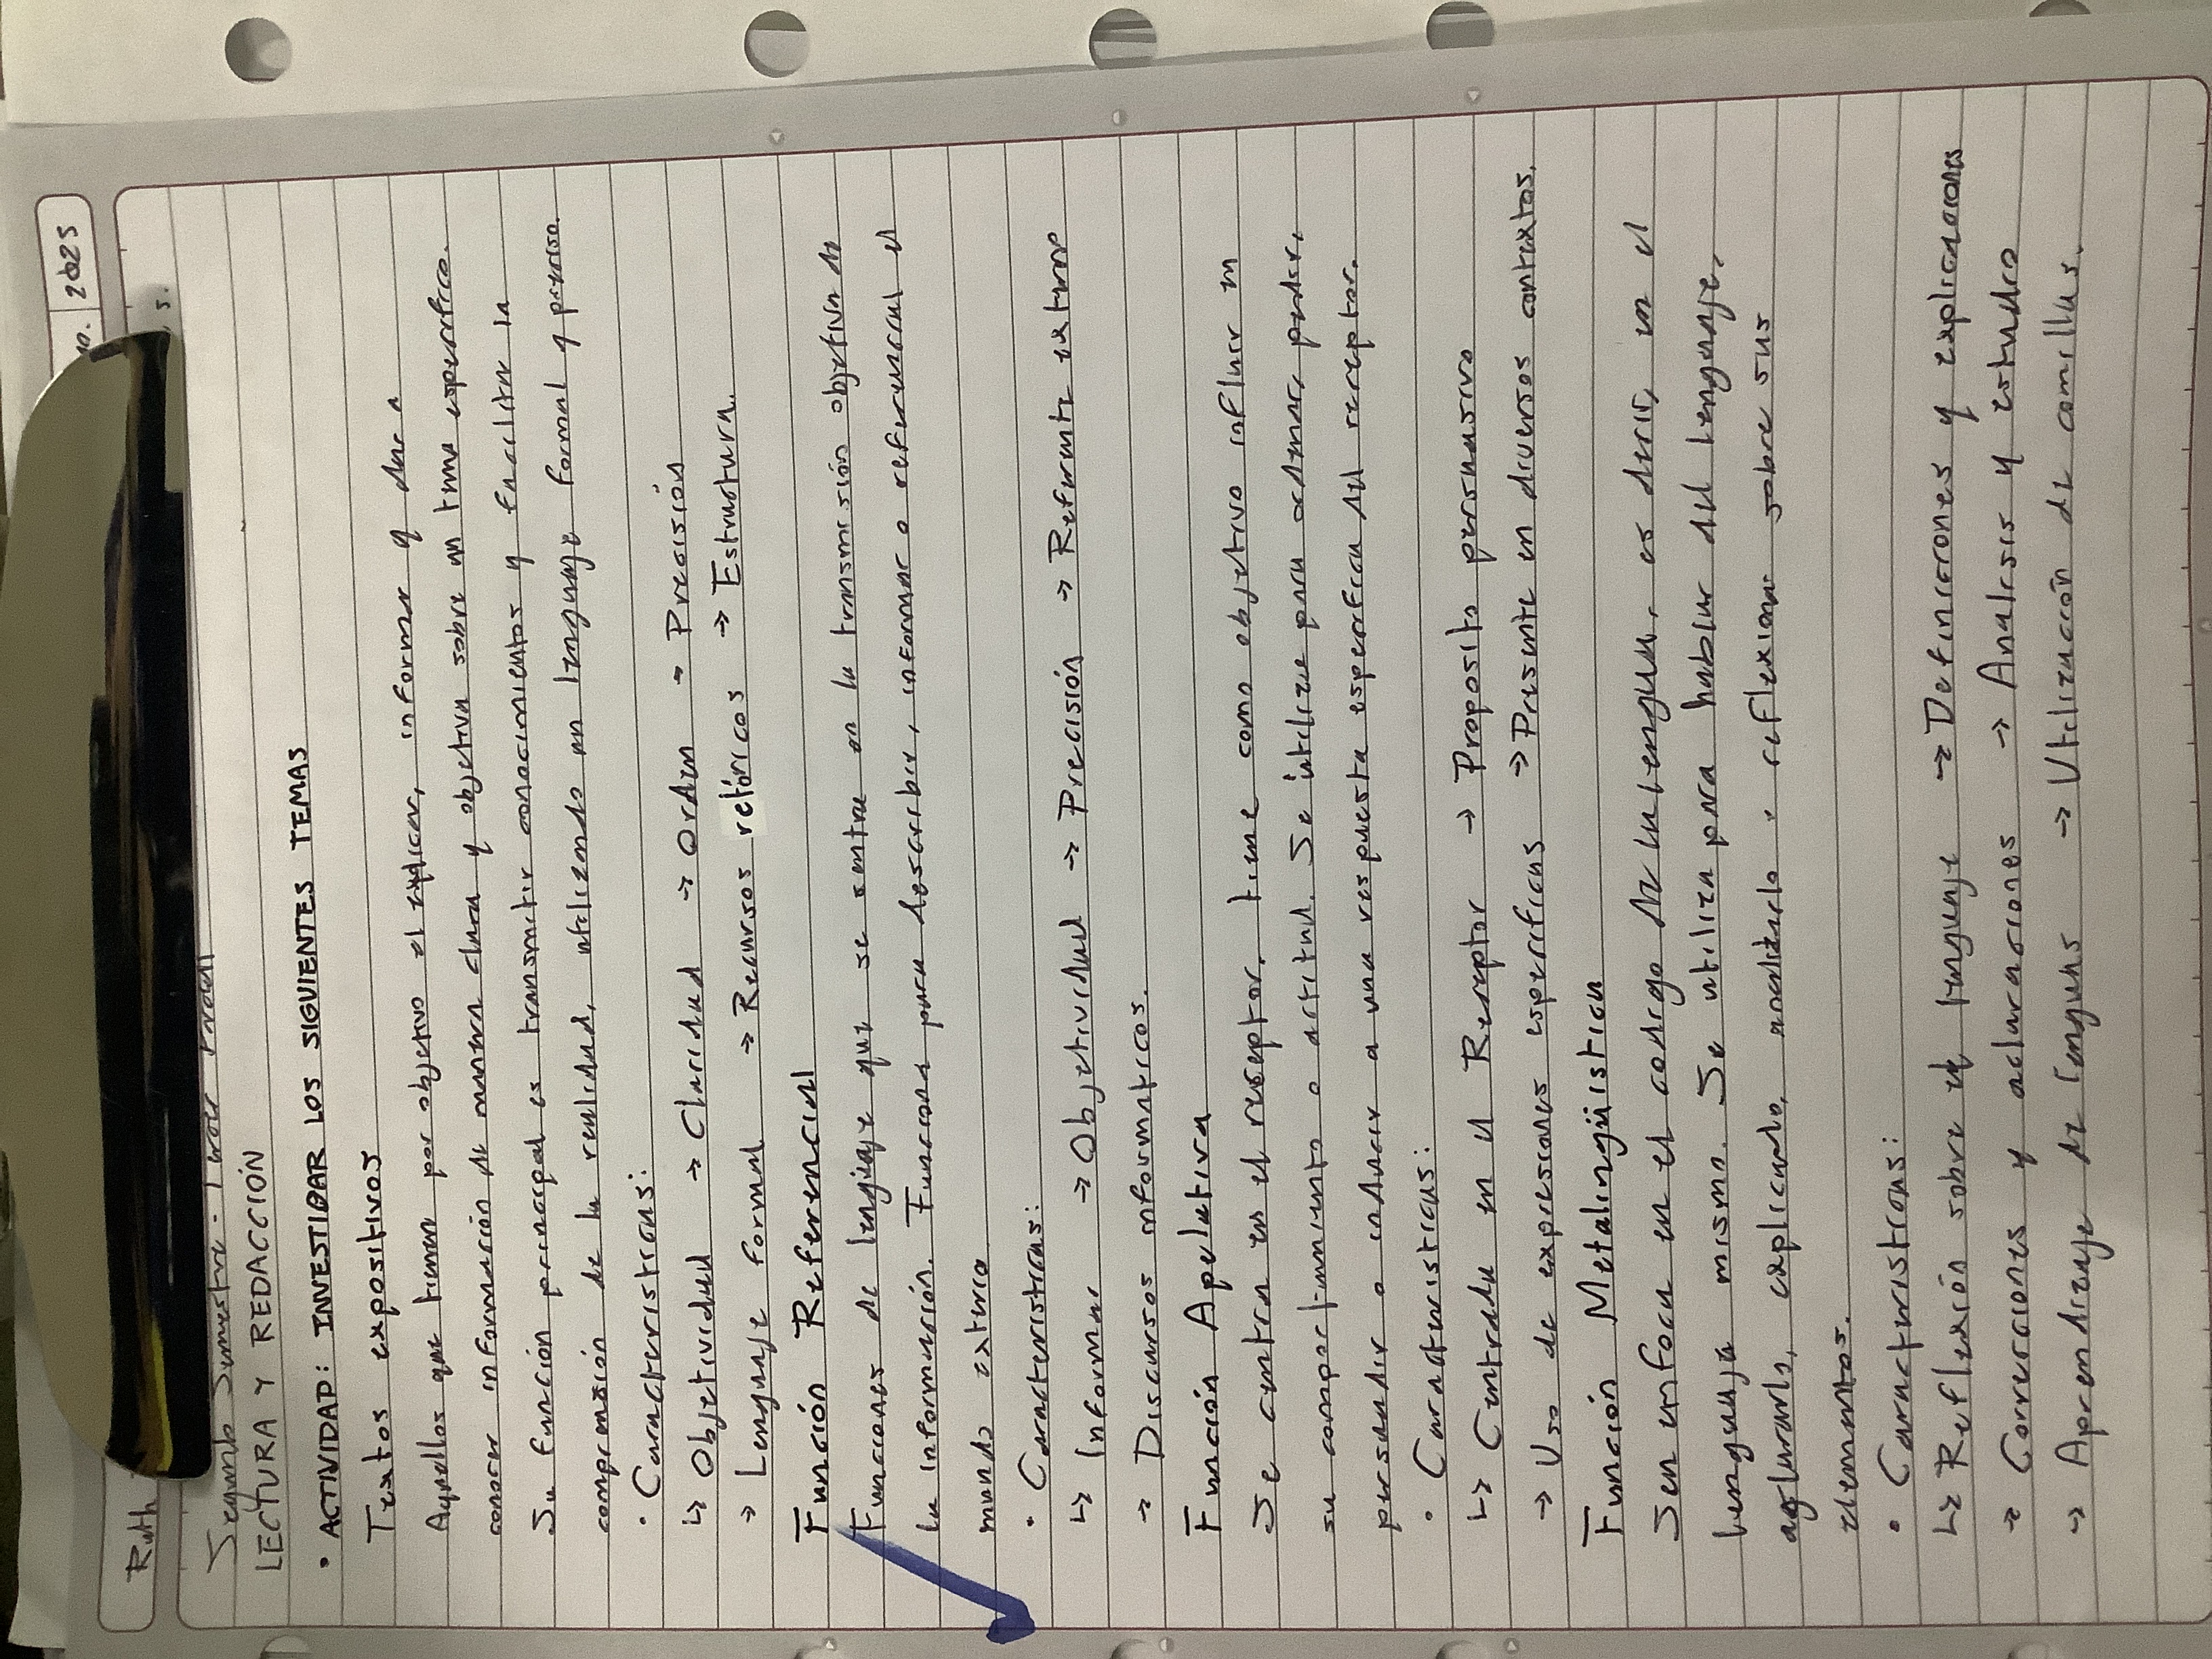 2025
Ruth
Segundo Semestre -
LECTURA Y REDACCIÓN
• ACTIVIDAD: INVESTIGAR LOS SIGUIENTES TEMAS
Textos expositivos
Aquellos que tienen por objetivo el explicar, informar y dar a
conocer información de manera clara y objetiva sobre un tema específico.
Su función principal es transmitir conocimientos y facilitar la
comprensión de la realidad, utilizando un lenguaje formal y preciso.
• Características:
↳ Objetividad → Claridad → Orden → Precisión
→ Lenguaje formal → Recursos retóricos → Estructura.
Función Referencial
Funciones de lenguaje que se centra en la transmisión objetiva de
la información. Funciona para describir, informar o referencial el
mundo externo
• Características:
↳ Informar → Objetividad → Precisión → Referente externo
→ Discursos informaticos.
Función Apelativa
Se centra en el receptor, tiene como objetivo influir en
su comportamiento o actitud. Se utiliza para ordenar, pedir,
persuadir o inducir a una respuesta específica del receptor.
• Características:
↳ Centrada en el Receptor → Proposito persuasivo
→ Uso de expresiones especificas → Presente en diversos contextos.
Función Metalingüistica
Sen enfoca en el codigo de la lengua, es decir, en el
lenguaje mismo. Se utiliza para hablar del lenguaje,
aclararlo, explicarlo, analizarlo y reflexionar sobre sus
elementos.
• Caracteristicas:
↳ Reflexión sobre el lenguaje → Definiciones y explicaciones
→ Correcciones y aclaraciones → Analisis y estudio
→ Aprendizaje de lenguas → Utilización de comillas.